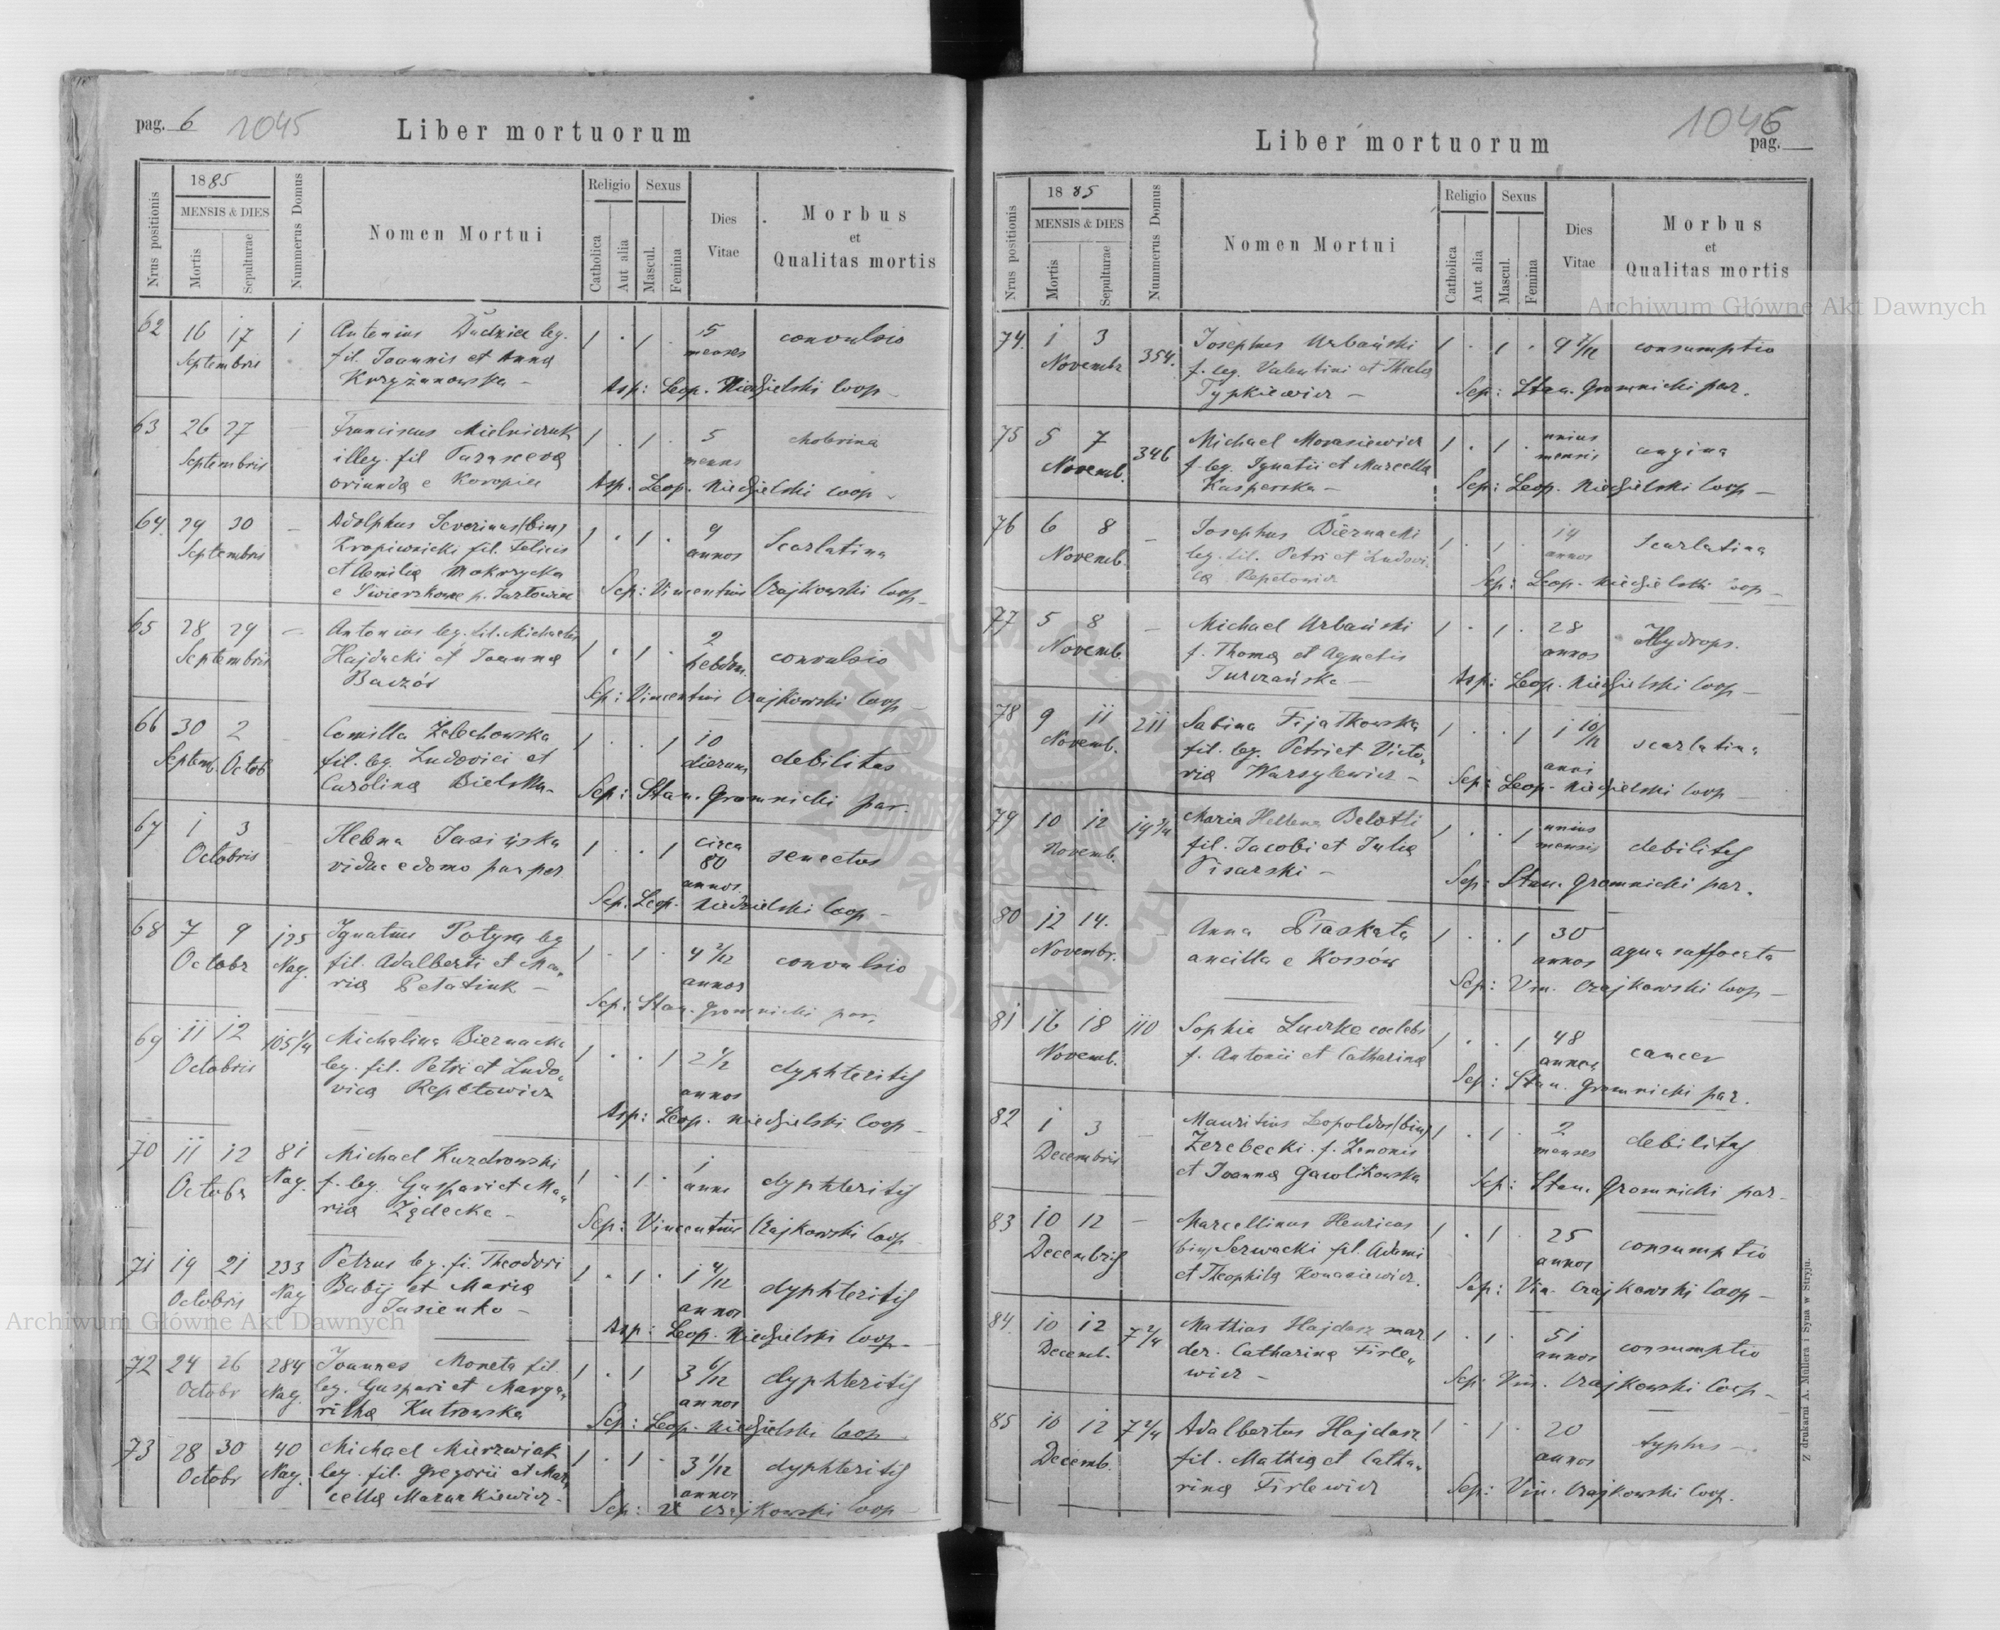 pag. 6 1045
Liber mortuorum
Nrus positionis
1885
MENSIS & DIES
Mortis
Sepulturae
Nummerus Domus
Nomen Mortui
Religio
Catholica
Aut alia
Sexus
Mascul.
Femina
Dies
Vitae
Morbus
et
Qualitas mortis
62 16 17 1 Antonius Dudzicz leg. 1 . 1 . 5 convulsio
Septembris fil. Joannis et Anna menses
Krzyżanowska - Asp: Leop. Niedzielski Coop
63 26 27 Franciscus Mielniczuk 1 . 1 . 5 cholerina
Septembris illeg. fil Parascevæ menses
oriundæ e Koropiec Asp. Leop. Niedzielski coop
64 29 30 - Adolphus Severinus (bin) 1 . 1 . 9 Scarlatina
Septembris Kropiwnicki fil. Felicis annos
et Aemilia Mokrzycka Sep: Vincentius Czajkowski Coop
65 28 29 - Antonius leg. fil. Michaelis 1 . 1 . 2 convulsio
Septembris Hajducki et Joanna hebdm.
Sep: Vincentius Czajkowski Coop
66 30 2 Camilla Żelechowska 1 . . 1 10 debilitas
Septemb. Octob fil. leg. Ludovici et dierum
Carolina Bielska Sep: Stan. Gromnicki par.
67 1 3 Helena Jasińska 1 . . 1 circa senectus
Octobris vidua e domo paupor. 80
annos
Sep. Leop. Niedzielski Coop
68 7 9 125 Ignatius Potyra leg 1 . 1 . 4 2/12 convulsio
Octobr Nag. fil. Adalberti et Ma annos
ria Petatiuk - Sep: Stan. Gromnicki par.
69 11 12 105 1/4 Michalina Biernacka 1 . . 1 2 dyphteritis
Octobris leg. fil. Petri et Ludo annos
vica Repetowicz Asp: Leop. Niedzielski Coop
70 11 12 81 Michael Kurdrowski 1 . 1 . 1 dyphteritis
Octobr Nag. f. leg. Gaspari et Ma anni
ria Sep: Vincentius Czajkowski Coop
71 19 21 233 Petrus leg. fi. Theodori 1 . 1 . 1 4/12 dyphteritis
Octobris Nag Babij et Maria annos
Jasienko - Asp: Leop. Niedzielski Coop.
72 24 26 284 Joannes Moneta fil. 1 . 1 3 6/12 dyphteritis
Octobr Nag. leg. Gaspari et Marga annos
ritha Kutrowska Sep: Leop. Niedzielski Coop
73 28 30 40 Michael Mierzwiak 1 . 1 . 3 1/12 dyphteritis
Octobr Nag. leg. fil. Gregorii et Mar annos
cella Mazurkiewicz. Sep: V Czajkowski Coop
1046
pag.
Liber mortuorum
Nrus positionis
1885
MENSIS & DIES
Mortis
Sepulturae
Nummerus Domus
Nomen Mortui
Religio
Catholica
Aut alia
Sexus
Mascul.
Femina
Dies
Vitae
Morbus
et
Qualitas mortis
74. 1 3 354. Josephus Urbański 1 . 1 . 9 consumptio
Novembr f. leg. Valentini et Thecla
Typkiewicz - Sep: Stan. Gromnicki par.
75 5 7 346 Michael Morasiewicz 1 . 1 . unius angina
Novemb. f. leg. Ignatii et Marcella mensis
Kasperska - Sep: Leop. Niedzielski Coop
76 6 8 - Josephus Biernacki 1 . 1 . 14 Scarlatina
Novemb. leg. fil. Petri et Ludovi annos
ca Repetowicz Sep: Leop. Niedzielski Coop
77 5 8 - Michael Urbański 1 . 1 . 28 Hydrops.
Novemb. f. Thoma et Agnetis annos
Turczańska - Asp: Leop. Niedzielski Coop
78 9 11 211 Sabina Fijałkowska 1 . . 1 1 10/12 scarlatina
Novemb. fil. leg. Petri et Victo anni
ria Wasylewicz - Sep: Leop. Niedzielski Coop
79 10 12 19 3/4 Maria Hellena Belotti 1 . . 1 unius debilitas
Novemb. fil. Jacobi et Julia mensis
Pisarski - Sep: Stan. Gromnicki par.
80 12 14. - Anna Płaskata 1 . . 1 30 aqua suffocata
Novembr. ancilla e Kossów annos
Sep: Vin. Czajkowski Coop
81 16 18 110 Sophia Ludzka coelebs 1 . . 1 48 cancer
Novemb. f. Antonii et Catharina annos
Sep: Stan. Gromnicki par.
82 1 3 - Mauritius Leopoldus (bin) 1 . 1 . 2 debilitas
Decembris Żerebecki f. Zenonis menses
et Joanna Gawlikowska Sep: Stan. Gromnicki par.
83 10 12 - Marcellinus Henricus 1 . 1 25 consumptio
Decembris bin) Serwacki fil. Adami annos
et Theophila Konasiewicz. Sep: Vin. Czajkowski Coop
84. 10 12 7 2/4 Mathias Hajdasz mar 1 . 1 . 51 consumptio
Decemb. der. Catharina Firle annos
wicz - Sep: Vin. Czajkowski Coop
85 10 12 7 2/4 Adalbertus Hajdasz 1 1 . 20 typhus -
Decemb. fil. Mathia et Catha annos
rina Firlewicz Sep: Vin. Czajkowski Coop.
Z drukarni A. Müllera i Syna w Stryju.
Archiwum Główne Akt Dawnych
Archiwum Główne Akt Dawnych
ARCHIWUM GŁÓWNE AKT DAWNYCH